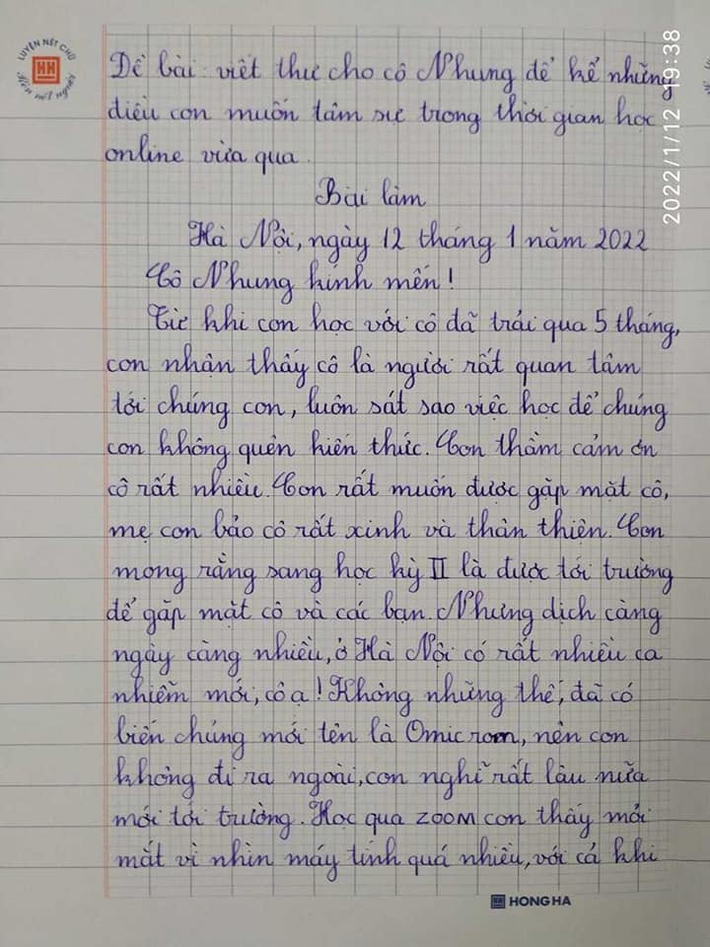 LUYỆN NÉT CHỮ
HH
Rèn nết người
2022/1/12 19:38
Đề bài: viết thư cho cô Nhung để kể những
điều con muốn tâm sự trong thời gian học
online vừa qua.
Bài làm
Hà Nội, ngày 12 tháng 1 năm 2022
Cô Nhung kính mến!
Từ khi con học với cô đã trải qua 5 tháng,
con nhận thấy cô là người rất quan tâm
tới chúng con, luôn sát sao việc học để chúng
con không quên kiến thức. Con thầm cảm ơn
cô rất nhiều. Con rất muốn được gặp mặt cô,
mẹ con bảo cô rất xinh và thân thiện. Con
mong rằng sang học kỳ II là được tới trường
để gặp mặt cô và các bạn. Nhưng dịch càng
ngày càng nhiều, ở Hà Nội có rất nhiều ca
nhiễm mới, cô ạ! Không những thế, đã có
biến chúng mới tên là Omicrom, nên con
không đi ra ngoài, con nghĩ rất lâu nữa
mới tới trường. Học qua ZOOM con thấy mỏi
mắt vì nhìn máy tính quá nhiều, với cả khi
HH HONG HA